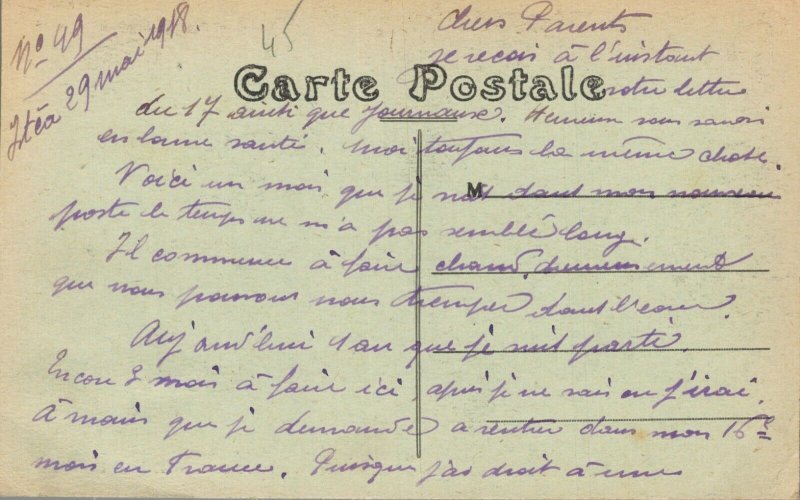 No 49
Itéa 29 mai 1918.
45
Chers Parents
je reçois à l'instant
Carte Postale
votre lettre
du 17 ainsi que journaux. Heureux vous savoir
en bonne santé. Moi toujours la même chose.
Voici un mois que je suis dans mon nouveau
M
poste le temps ne m'a pas semblé long.
Il commence à faire chaud, heureusement
que nous pouvons nous tremper dans l'eau.
Aujourd'hui 1 an que je suis parti.
Encore 2 mois à faire ici, après je ne sais ou j'irai.
À moins que je demande a rentrer dans mon 16e
mois en France. Puisque j'ai droit à une